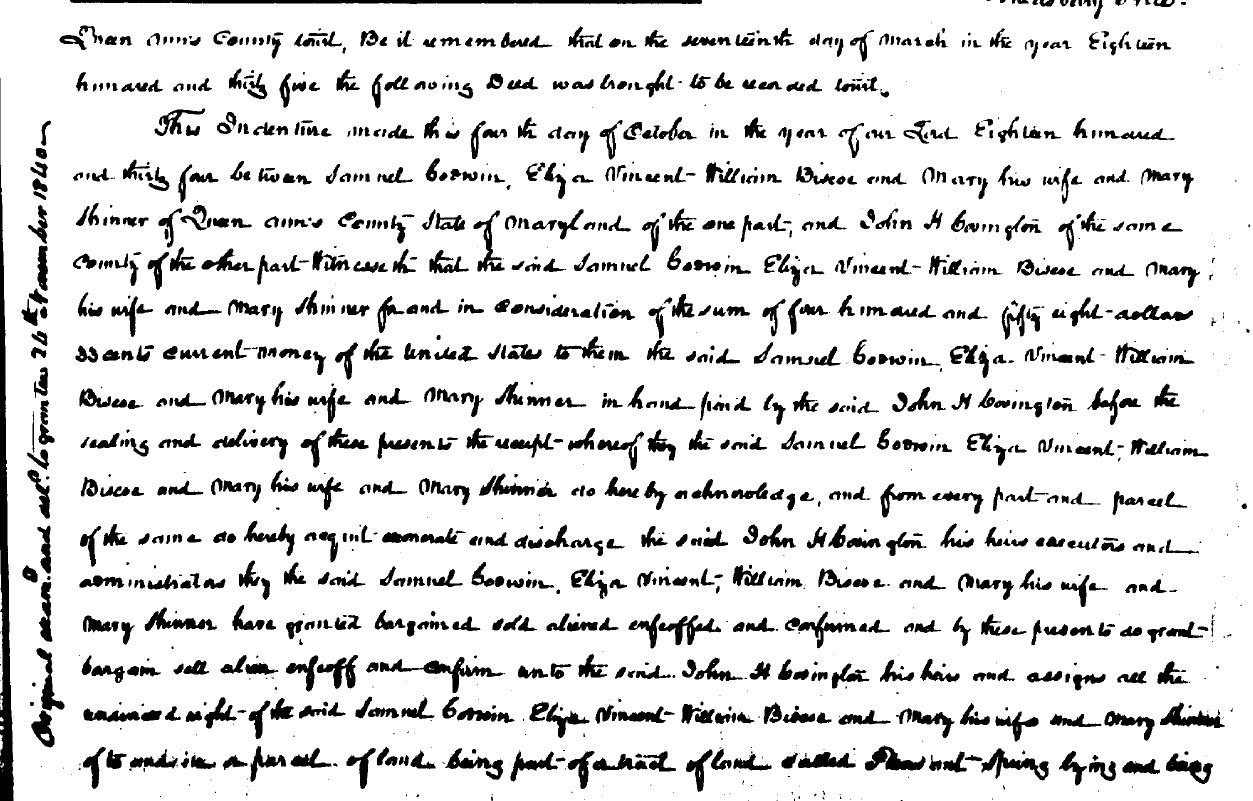 Queen Ann's County Court, Be it remembered that on the seventeenth day of March in the year Eighteen
hundred and thirty five the following Deed was brought to be recorded towit.
This Indenture made this fourth day of October in the year of our Lord Eighteen hundred
and thirty four between Samuel Corwin, Eliza Vincent William Biscoe and Mary his wife and Mary
Skinner of Queen Ann's County State of Maryland of the one part, and John H Covington of the same
County of the other part Witnesseth that the said Samuel Corwin Eliza Vincent William Biscoe and Mary
his wife and Mary Skinner for and in consideration of the sum of four hundred and fifty eight dollars
33 cents current money of the United States to them the said Samuel Corwin, Eliza Vincent William
Biscoe and Mary his wife and Mary Skinner in hand paid by the said John H Covington before the
sealing and delivery of these presents the receipt whereof they the said Samuel Corwin Eliza Vincent, William
Biscoe and Mary his wife and Mary Skinner do hereby acknowledge, and from every part and parcel
of the same do hereby acquit exonerate and discharge the said John H Covington his heirs executors and
administrators they the said Samuel Corwin, Eliza Vincent, William Biscoe and Mary his wife and
Mary Skinner have granted bargained sold aliened enfeoffed and confirmed and by these presents do grant
bargain sell alien enfeoff and confirm unto the said John H Covington his heirs and assigns all the
undivided right of the said Samuel Corwin Eliza Vincent William Biscoe and Mary his wife and Mary Skinner
of to and in a parcel of land being part of a tract of land called Pleasant Spring lying and being
Original exan.d and del.d to grantee 26th November 1840